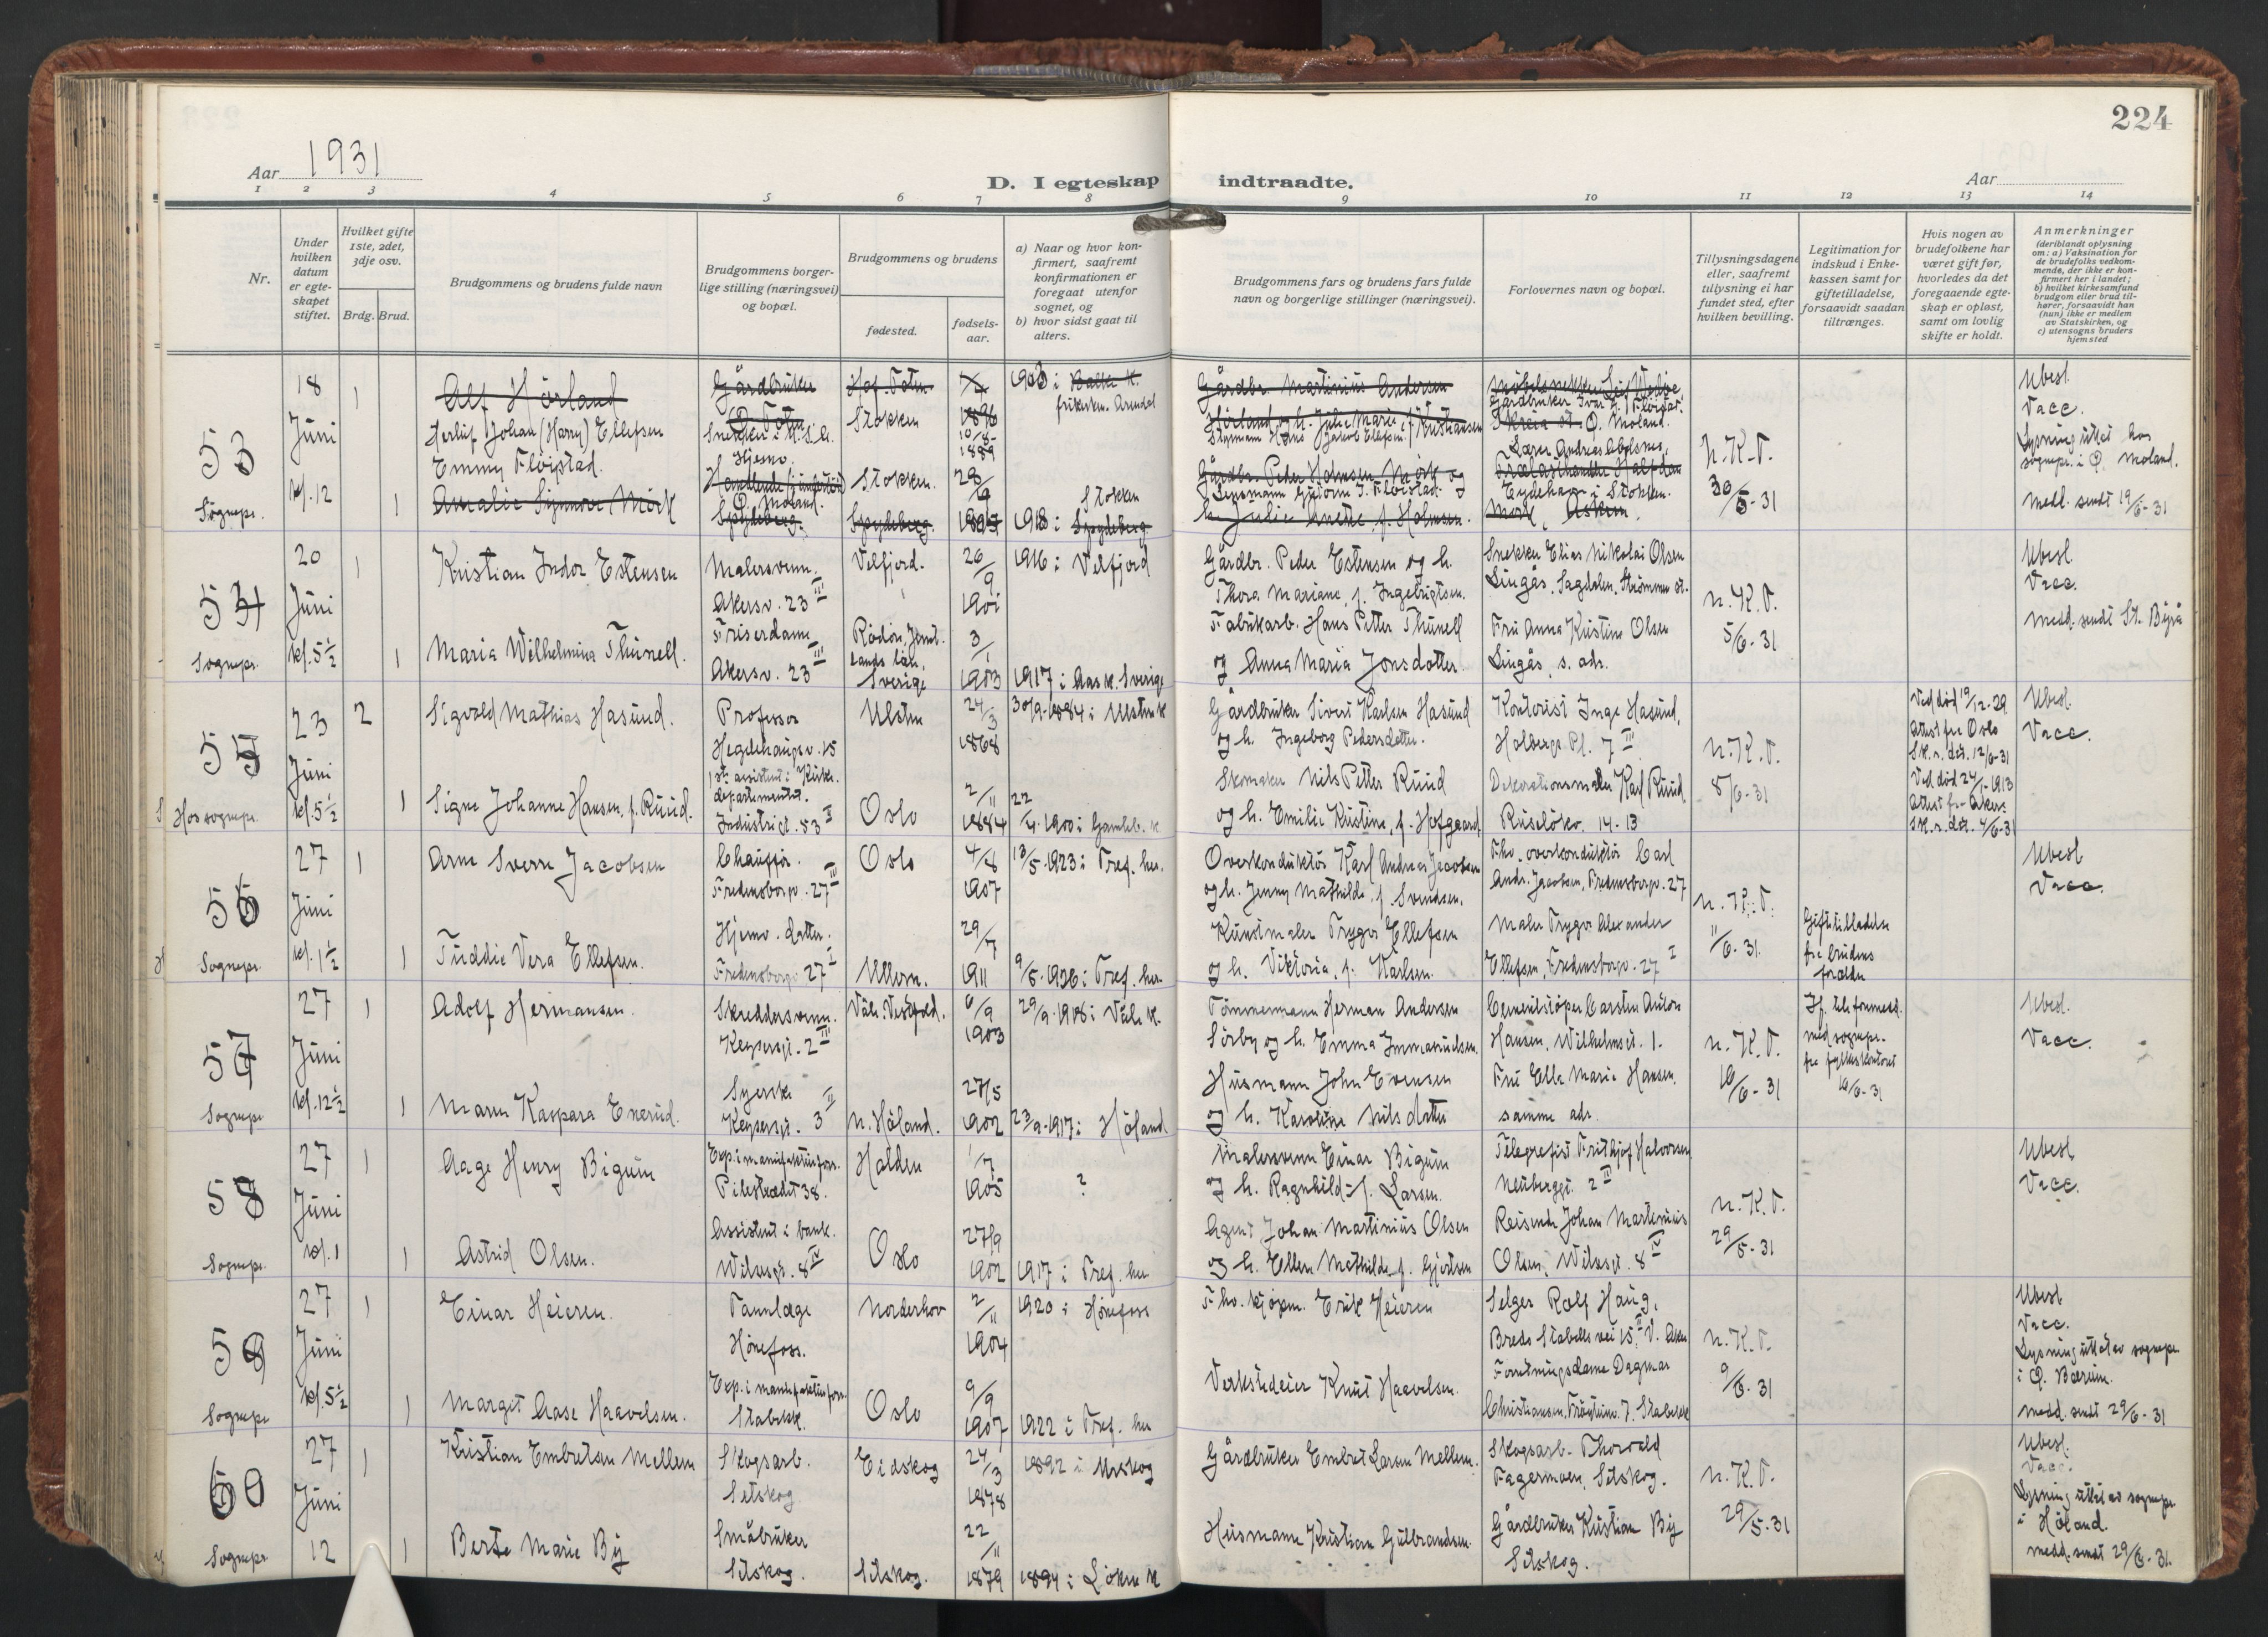 224
Aar 1931
D. I egteskap indtraadte.
Aar
1 2 3 4 5 6 7 8 9 10 11 12 13 14
Nr.
Under hvilken datum er egteskapet stiftet.
Hvilket gifte 1ste, 2det, 3dje osv.
Brdg. Brud.
Brudgommens og brudens fulde navn
Brudgommens borgerlige stilling (næringsvei) og bopæl.
Brudgommens og brudens
fødested.
fødselsaar.
a) Naar og hvor konfirmert, saafremt konfirmationen er foregaat utenfor sognet, og
b) hvor sidst gaat til alters.
Brudgommens fars og brudens fars fulde navn og borgerlige stillinger (næringsvei).
Forlovernes navn og bopæl.
Tillysningsdagene eller, saafremt tillysning ei har fundet sted, efter hvilken bevilling.
Legitimation for indskud i Enkekassen samt for giftetilladelse, forsaavidt saadan tiltrænges.
Hvis nogen av brudefolkene har været gift før, hvorledes da det foregaaende egteskap er opløst, samt om lovlig skifte er holdt.
Anmerkninger
(deriblandt oplysning om: a) Vaksination for de brudefolks vedkommende, der ikke er konfirmert her i landet; b) hvilket kirkesamfund brudgom eller brud tilhører, forsaavidt han (hun) ikke er medlem av Statskirken, og c) utensogns bruders hjemsted
53
18 Juni kl. 12
Sognepr.
1
Alf Hörland
Herluf Johan (Harry) Ellefsen
Gårdbruker
Stokken
1889
Gårdbr. Martinius Andersen
Emmy Flöistad.
1
Amalie Signora Mörk
Hjemv.
Ö. Moland.
Spydeberg.
Stokken.
Spydeberg.
Stokken
1918 i Spydeberg
Gårdbr. Peder Holmsen Mörk og
h. Julie Anette, f. Holmsen.
Eydehavn i Stokken.
Mörk, Askim.
N.K.T.
30/5-31
Ubesl.
Vacc.
Lysning utlat hos
sognepr. i Ö. Moland.
medd. sendt 19/6-31
54
20 Juni kl. 5½
Sognepr.
1
Kristian Indor Estensen
Malersvenn.
Akersv. 23 III
Velfjord.
26/9
1901
1916 i Velfjord
Gårdbr. Peder Estensen og h.
Thora Mariane, f. Ingebrigtsen.
Snekker Elias Nikolai Olsen
Lingås, Sagdalen, Strömmen st.
1
Maria Wilhelmina Thunell.
Friserdame
Akersv. 23 III
Rödön, Jemt.
lands län,
Sverige
3/1
1903
1917 i Aas k. Sverige
Fabrikarb. Hans Petter Thunell
og Anna Maria Jonsdotter.
Fru Anna Kristine Olsen
Lingås, s. adr.
n.K.T.
5/6-31
Ubesl.
Vacc.
medd. sendt St. Byrå
55
23 Juni kl. 5½
Hos sognepr.
2
Sigvald Mathias Hasund.
Professor
Hegdehaugsv. 15
Ulsten
24/3
1868
30/9-1884 i Ulsten k
Gårdbruker Sivert Karlsen Hasund
og h. Ingeborg Pedersdatter.
Kontorist Inge Hasund,
Holbergs Pl. 7 III
1
Signe Johanne Hansen, f. Ruud.
1ste assistent i Kirke-
departementet.
Industrigt. 53 II
Oslo
2/11
1884
22/4-1900 i Gamleb. k
Skomaker Nils Petter Ruud
og h. Emilie Kristine, f. Hofgaard
Dekorationsmaler Karl Ruud
Ruselökv. 14-13
n.K.T.
8/6-31
Ved död 19/12-29
Attest fra Oslo
Sk.r. dat. 12/6-31
Ved död 24/1-1913
Attest fr. Akers
Sk.r. dat. 4/6-31
Ubesl.
Vacc.
56
27 Juni kl. 1½
Sognepr.
1
Arne Sverre Jacobsen
Chaufför.
Fredensborgv. 27 III
Oslo
4/8
1907
13/5-1923 i Tref. her.
Overkonduktör Karl Andreas Jacobsen
og h. Jenny Mathilde, f. Svendsen.
Fhv. overkonduktör Carl
Andr. Jacobsen, Fredensborgv. 27
1
Tuddie Vera Ellefsen.
Hjemv. datter.
Fredensborgv. 27 I
Ullern.
29/7
1911
9/5-1926 i Tref. her
Kunstmaler Trygve Ellefsen
og h. Viktoria, f. Karlsen.
Maler Trygve Alexander
Ellefsen, Fredensborgv. 27 I
n.K.T.
11/6-31.
Giftetilladelse
fra brudens
forældre
Ubesl
Vacc.
57
27 Juni kl. 12½
Sognepr
1
Adolf Hermansen.
Skreddersvenn.
Keysersgt. 2 III
Våle. Vestfold.
6/9
1903
29/9-1918 i Våle k.
Tömmermann Herman Andersen
Sörby og h. Emma Immanuelsen.
Cementstöper Carsten Anton
Hansen, Wilhelmsgt. 1.
1
Maren Kaspara Enerud.
Syerske
Keysersgt. 3 II
N. Höland.
27/5
1902
23/9-1917 i Höland
Husmann John Evensen
og h. Karoline Nilsdatter
Fru Ella Marie Hansen.
samme adr.
n.K.T.
16/6-31
Jf. telefonmedd.
med sognepr.
fra fylkeskontoret
16/6-31
Ubesl.
Vacc.
58
27 Juni kl. 1
Sognepr.
1
Aage Henry Bigum
Exp. i manufakturforr.
Pilestrædet 38.
Halden
1/7
1905
?
Malersvenn Einar Bigum
og h. Ragnhild f. Larsen.
Telegrafist Frithjof Halvorsen
Neuberggt. 2 II
1
Astrid Olsen.
Assistent i bank.
Wilsesgt. 8 IV
Oslo
27/9
1902
1917 i Tref. her
Agent Johan Martinius Olsen
og h. Ellen Mathilde, f. Gjertsen
Reisende Johan Martinius
Olsen, Wilsesgt. 8 IV
n.K.T.
29/5-31
Ubesl
Vacc.
59
27 Juni kl. 5½
Sognepr
1
Einar Heieren.
Tannlæge
Hönefoss.
Norderhov
2/11
1904
1920 i Hönefoss
Fhv. kjöpm. Erik Heieren
Selger Rolf Haug,
Breda Stabells vei 15 II V. Aker
1
Margit Aase Haavelsen.
Exp. i manufakturforr.
Stabekk.
Oslo
9/9
1907
1922 i Tref. her
Verkstedeier Knut Haavelsen.
Forretningsdame Dagmar
Christiansen, Tröyteinv. 7. Stabekk
n.K.T.
9/6-31
Ubesl
Vacc.
Lysning utlat av sognepr
i Ö. Bærum.
medd. sendt 29/6-31
60
27 Juni 12
Sognepr.
1
Kristian Embretsen Mellem
Skogsarb.
Setskog
Eidskog
24/3
1878
1892 i Urskog
Gårdbruker Embret Larsen Mellem.
Skogsarb. Thorvald
Fagermoen, Setskog.
1
Berte Marie By
Småbruker
Setskog.
Setskog.
22/11
1879
1894 i Löken k
Husmann Kristian Gulbrandsen.
Gårdbruker Kristian By
Setskog.
n.K.T.
29/5-31
Ubesl.
Vacc.
Lysning utlat av sognepr
i Höland.
medd. sendt 29/6-31.